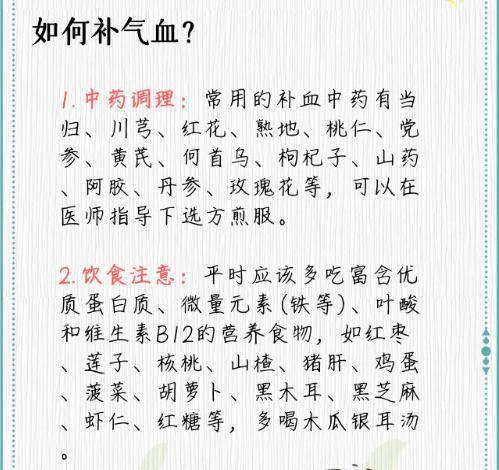 如何补气血?
1.中药调理：常用的补血中药有当
归、川芎、红花、熟地、桃仁、党
参、黄芪、何首乌、枸杞子、山药
、阿胶、丹参、玫瑰花等，可以在
医师指导下选方煎服。
2.饮食注意：平时应该多吃富含优
质蛋白质、微量元素(铁等)、叶酸
和维生素B12的营养食物，如红枣
、莲子、核桃、山楂、猪肝、鸡蛋
、菠菜、胡萝卜、黑木耳、黑芝麻
、虾仁、红糖等，多喝木瓜银耳汤
。